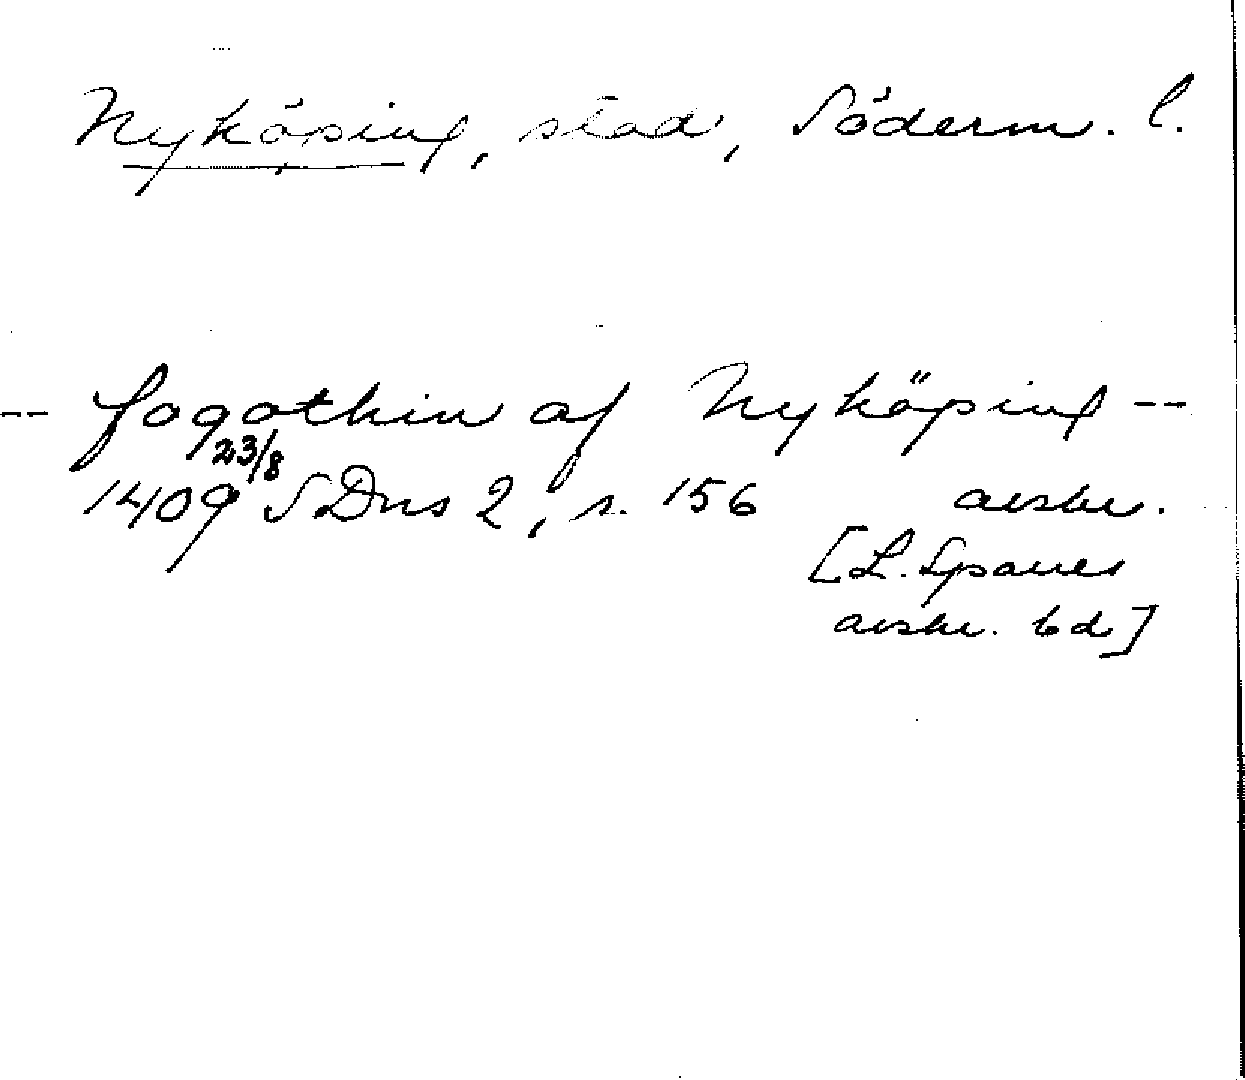 Nyköping, stad, Söderm. l.
-- fogothin af Nyköping --
1409 23/8 SDns 2, s. 156 avskr.
[L. Sparres
avskr. bd]